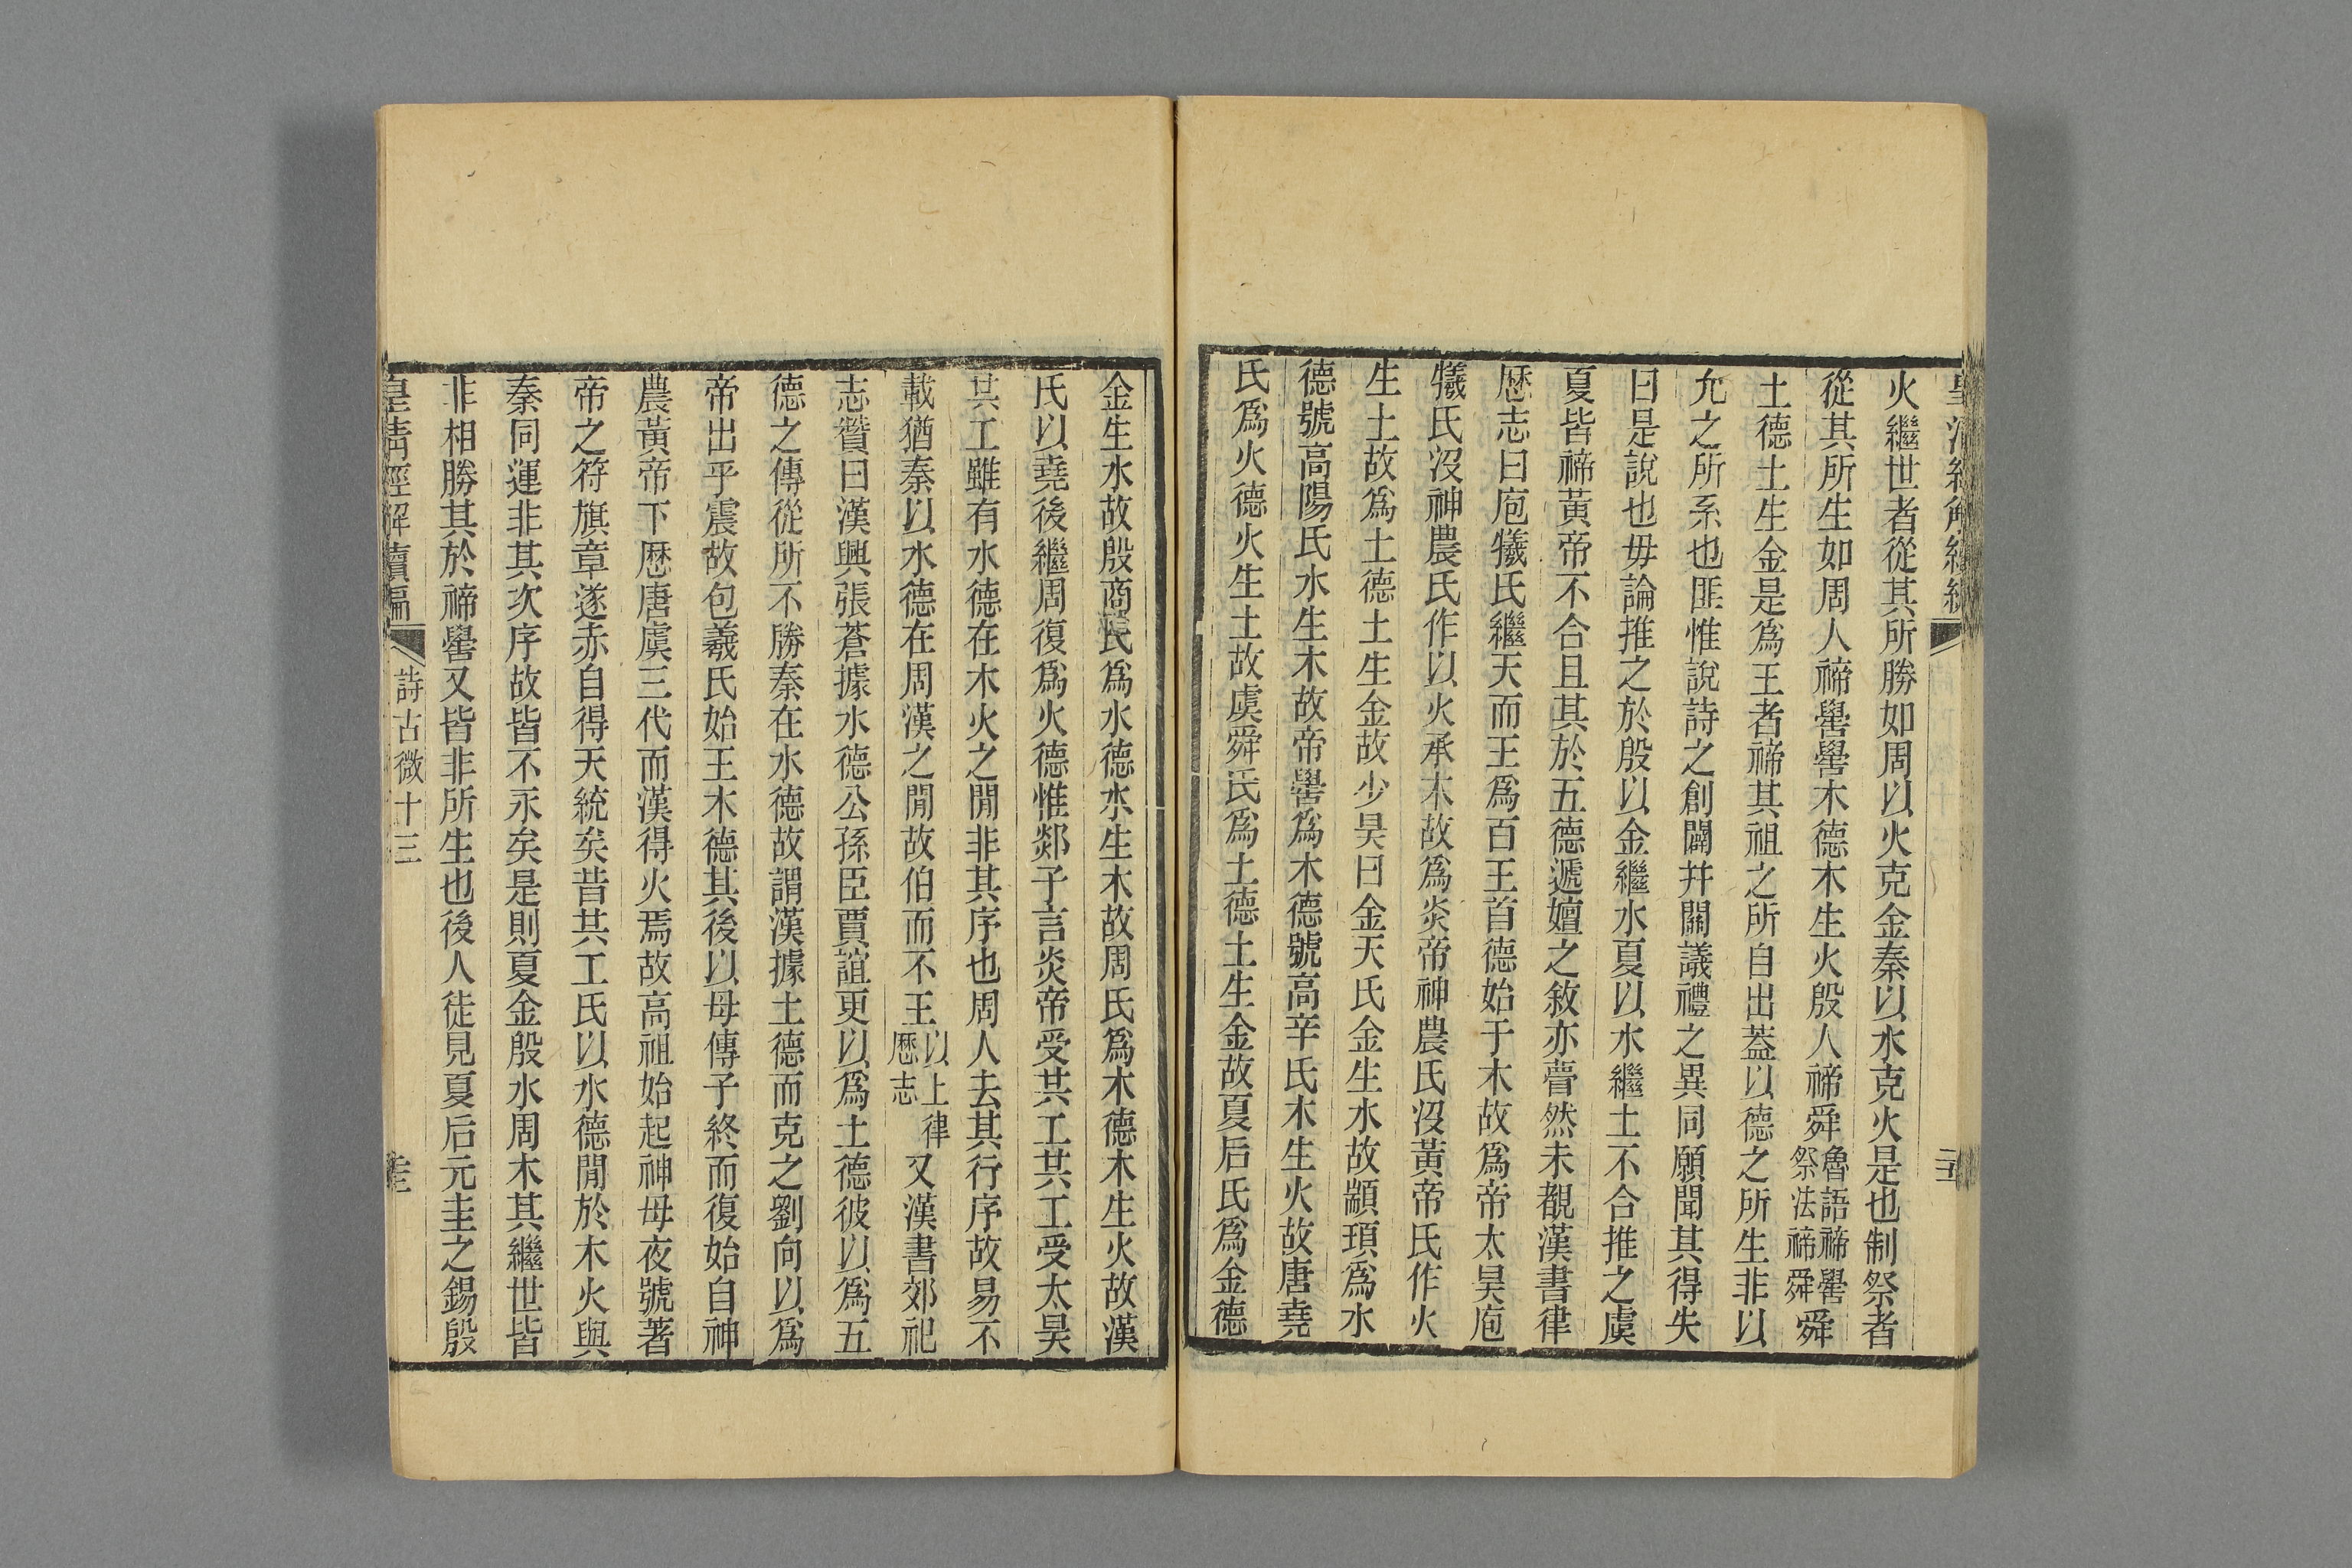 火繼世者從其所勝如周以火克金秦以水克火是也制祭者
從其所生如周人禘嚳嚳木德木生火殷人禘舜魯語禘嚳祭法禘舜舜
土德土生金是爲王者禘其祖之所自出蓋以德之所生非以
允之所系也匪惟說詩之創闢幷關議禮之異同願聞其得失
曰是說也毋論推之於殷以金繼水夏以水繼土不合推之虞
夏皆禘黃帝不合且其於五德遞嬗之敘亦瞢然未覩漢書律
厯志曰庖犧氏繼天而王爲百王首德始于木故爲帝太昊庖
犧氏沒神農氏作以火承木故爲炎帝神農氏沒黃帝氏作火
生土故爲土德土生金故少昊曰金天氏金生水故顓頊爲水
德號高陽氏水生木故帝嚳爲木德號高辛氏木生火故唐堯
氏爲火德火生土故虞舜氏爲土德土生金故夏后氏爲金德
金生水故殷商氏爲水德水生木故周氏爲木德木生火故漢
氏以堯後繼周復爲火德惟郯子言炎帝受共工共工受太昊
共工雖有水德在木火之閒非其序也周人去其行序故易不
載猶秦以水德在周漢之閒故伯而不王以上律厯志又漢書郊祀
志贊曰漢興張蒼據水德公孫臣賈誼更以爲土德彼以爲五
德之傳從所不勝秦在水德故謂漢據土德而克之劉向以爲
帝出乎震故包羲氏始王木德其後以母傳子終而復始自神
農黃帝下厯唐虞三代而漢得火焉故高祖始起神母夜號著
帝之符旗章遂赤自得天統矣昔共工氏以水德閒於木火與
秦同運非其次序故皆不永矣是則夏金殷水周木其繼世皆
非相勝其於禘嚳又皆非所生也後人徒見夏后元圭之錫殷
皇清經解續編
詩古微十三